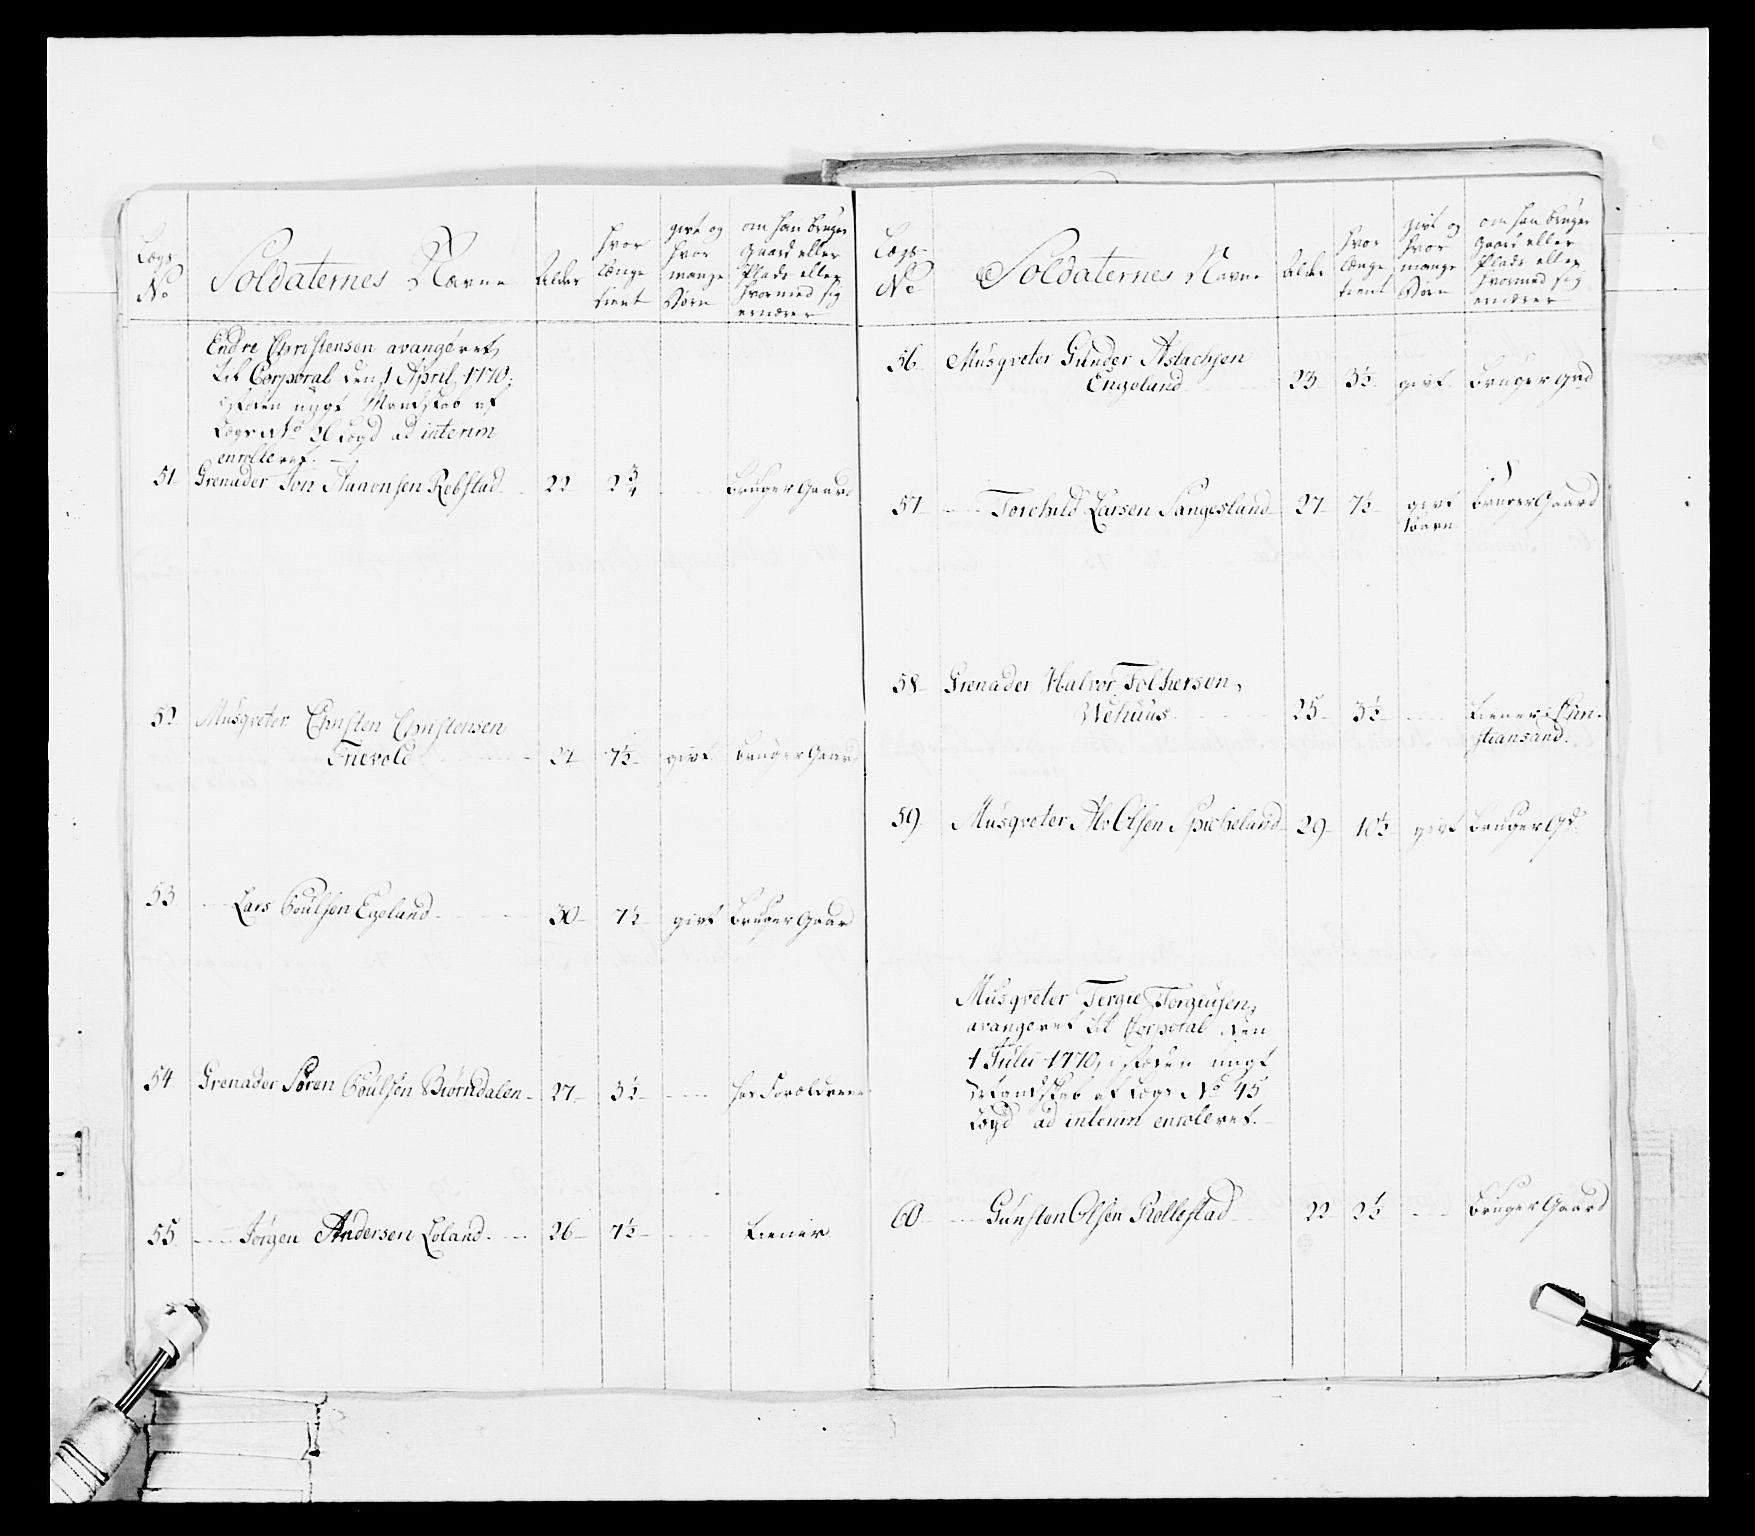 Lægs No
Soldaternes Navne
Alder
hvor længe tient
givt og hvor mange Børn
om han bruger Gaard eller Plads eller hvormed sig ernærer
Endre Christensen avangeret
til Corporal den 1 April 1770,
istæden ungt Mandskab af
Lægs No 36 Løgd ad interim
enrolleret.
51 Grenader Jon Aanonsen Rebstad 22 2 3/4 Bruger Gaard
52 Musqveter Christen Christensen
Trievold 27 7½ givt Bruger Gaard
53 Lars Poulsen Egeland 30 7½ givt Bruger Gaard
54 Grenader Sören Poulsen Biörndalen 27 3½ hos Forældrene
55 Jörgen Andersen Loland 26 7½ tiener
Lægs No
Soldaternes Navne
Alder
hvor længe tient
givt og hvor mange Børn
om han bruger Gaard eller Plads eller hvormed sig ernærer
56 Musqveter Gunder Aslachsen
Engeland 23 3½ givt bruger Grd
57 Torchild Larsen Sangesland 27 7½ givt Bruger Gaard
1 barn
58 Grenader Halvor Folchersen
Wehuus 25 3½ tiener i Chri-
stiansand.
59 Musqveter Alv Olsen Spicheland 29 10½ givt Bruger Gd.
Musqveter Tergie Torguisen,
avangeret til Corporal den
1 Julii 1770, istæden ungt
Mandskab af Lægs No 45
Løgd ad interim enroleret.
60 Gunsten Olsen Rollestad 22 2½ Bruger Gaard